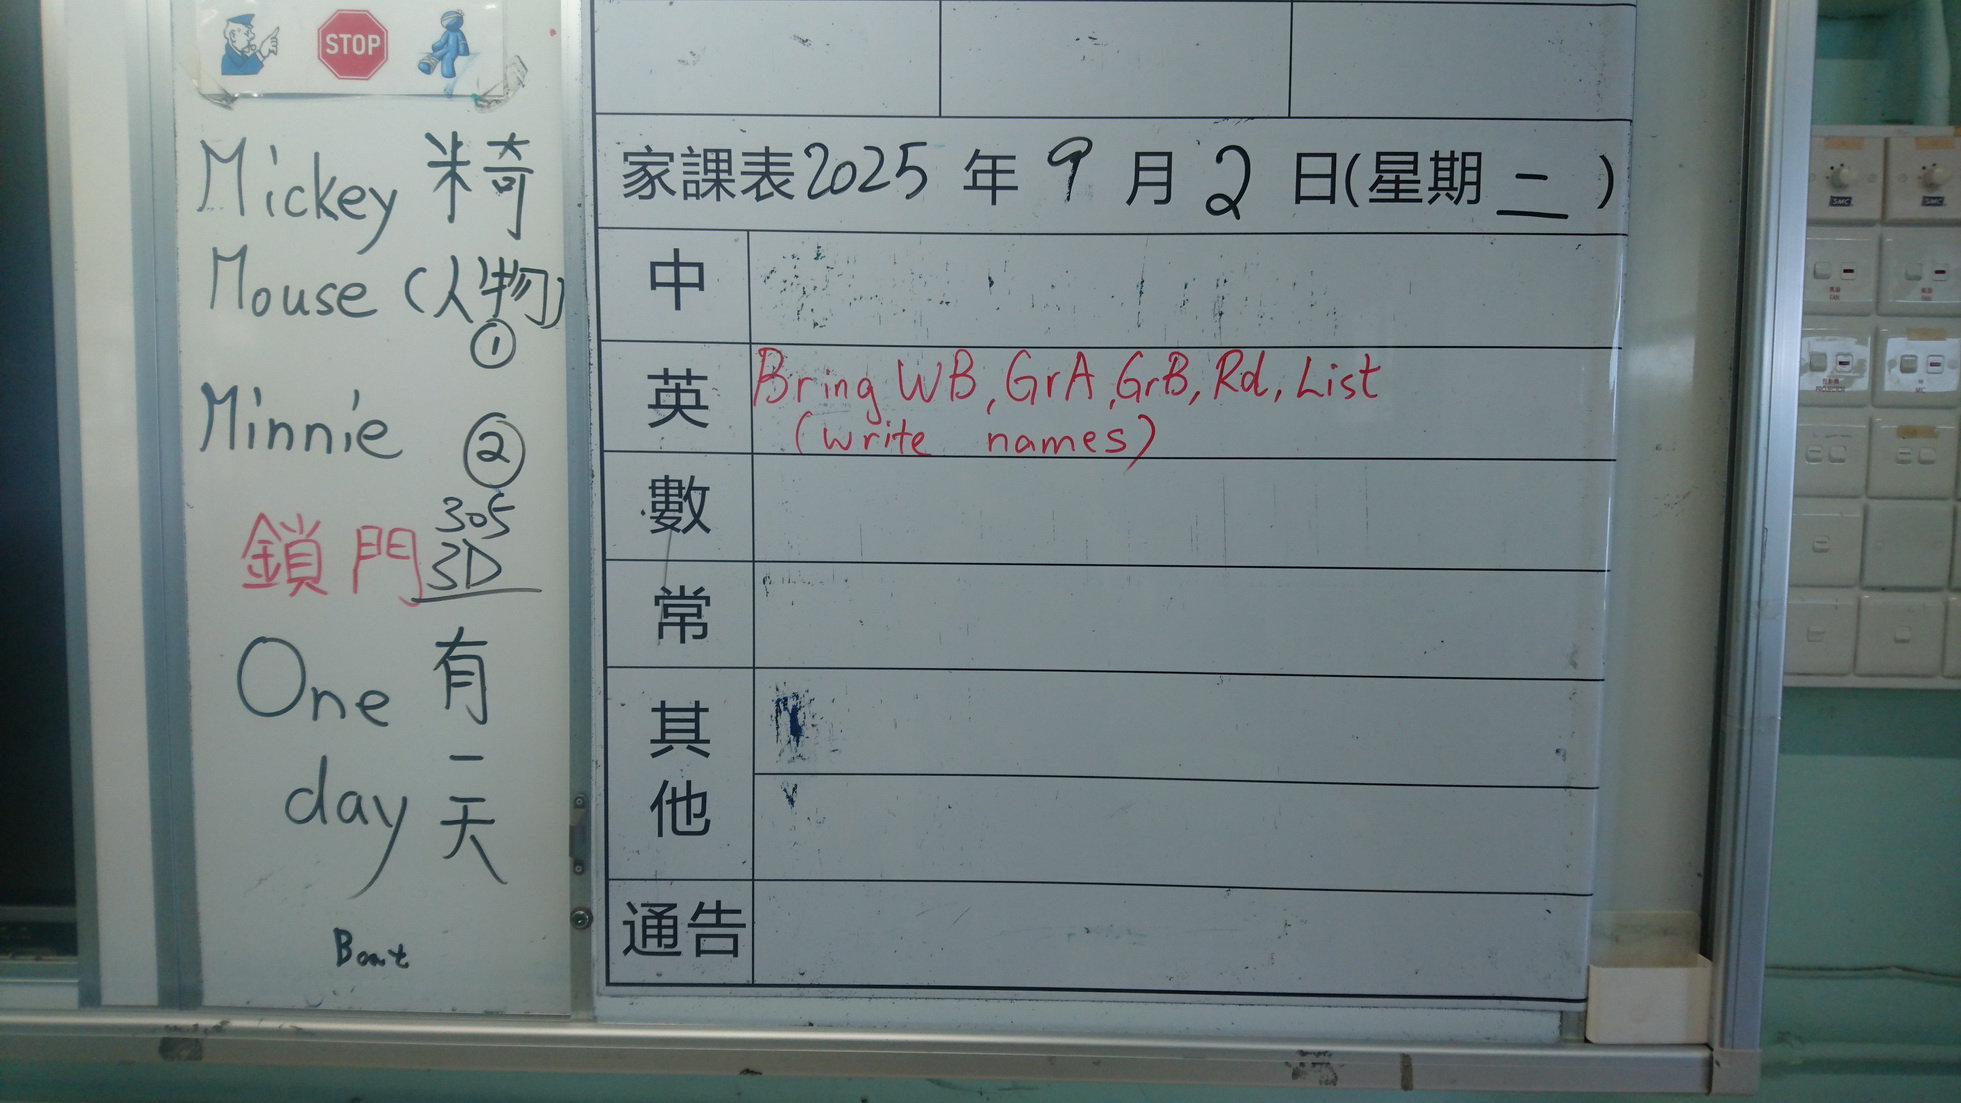 STOP
Mickey 米奇
Mouse (人物)
①
Minnie ②
305
鎖門 3D
One 有一天
day
Boat
家課表2025年9月2日(星期二)
中
英 Bring WB, GrA, GrB, Rd, List
(write names)
數
常
其他
通告